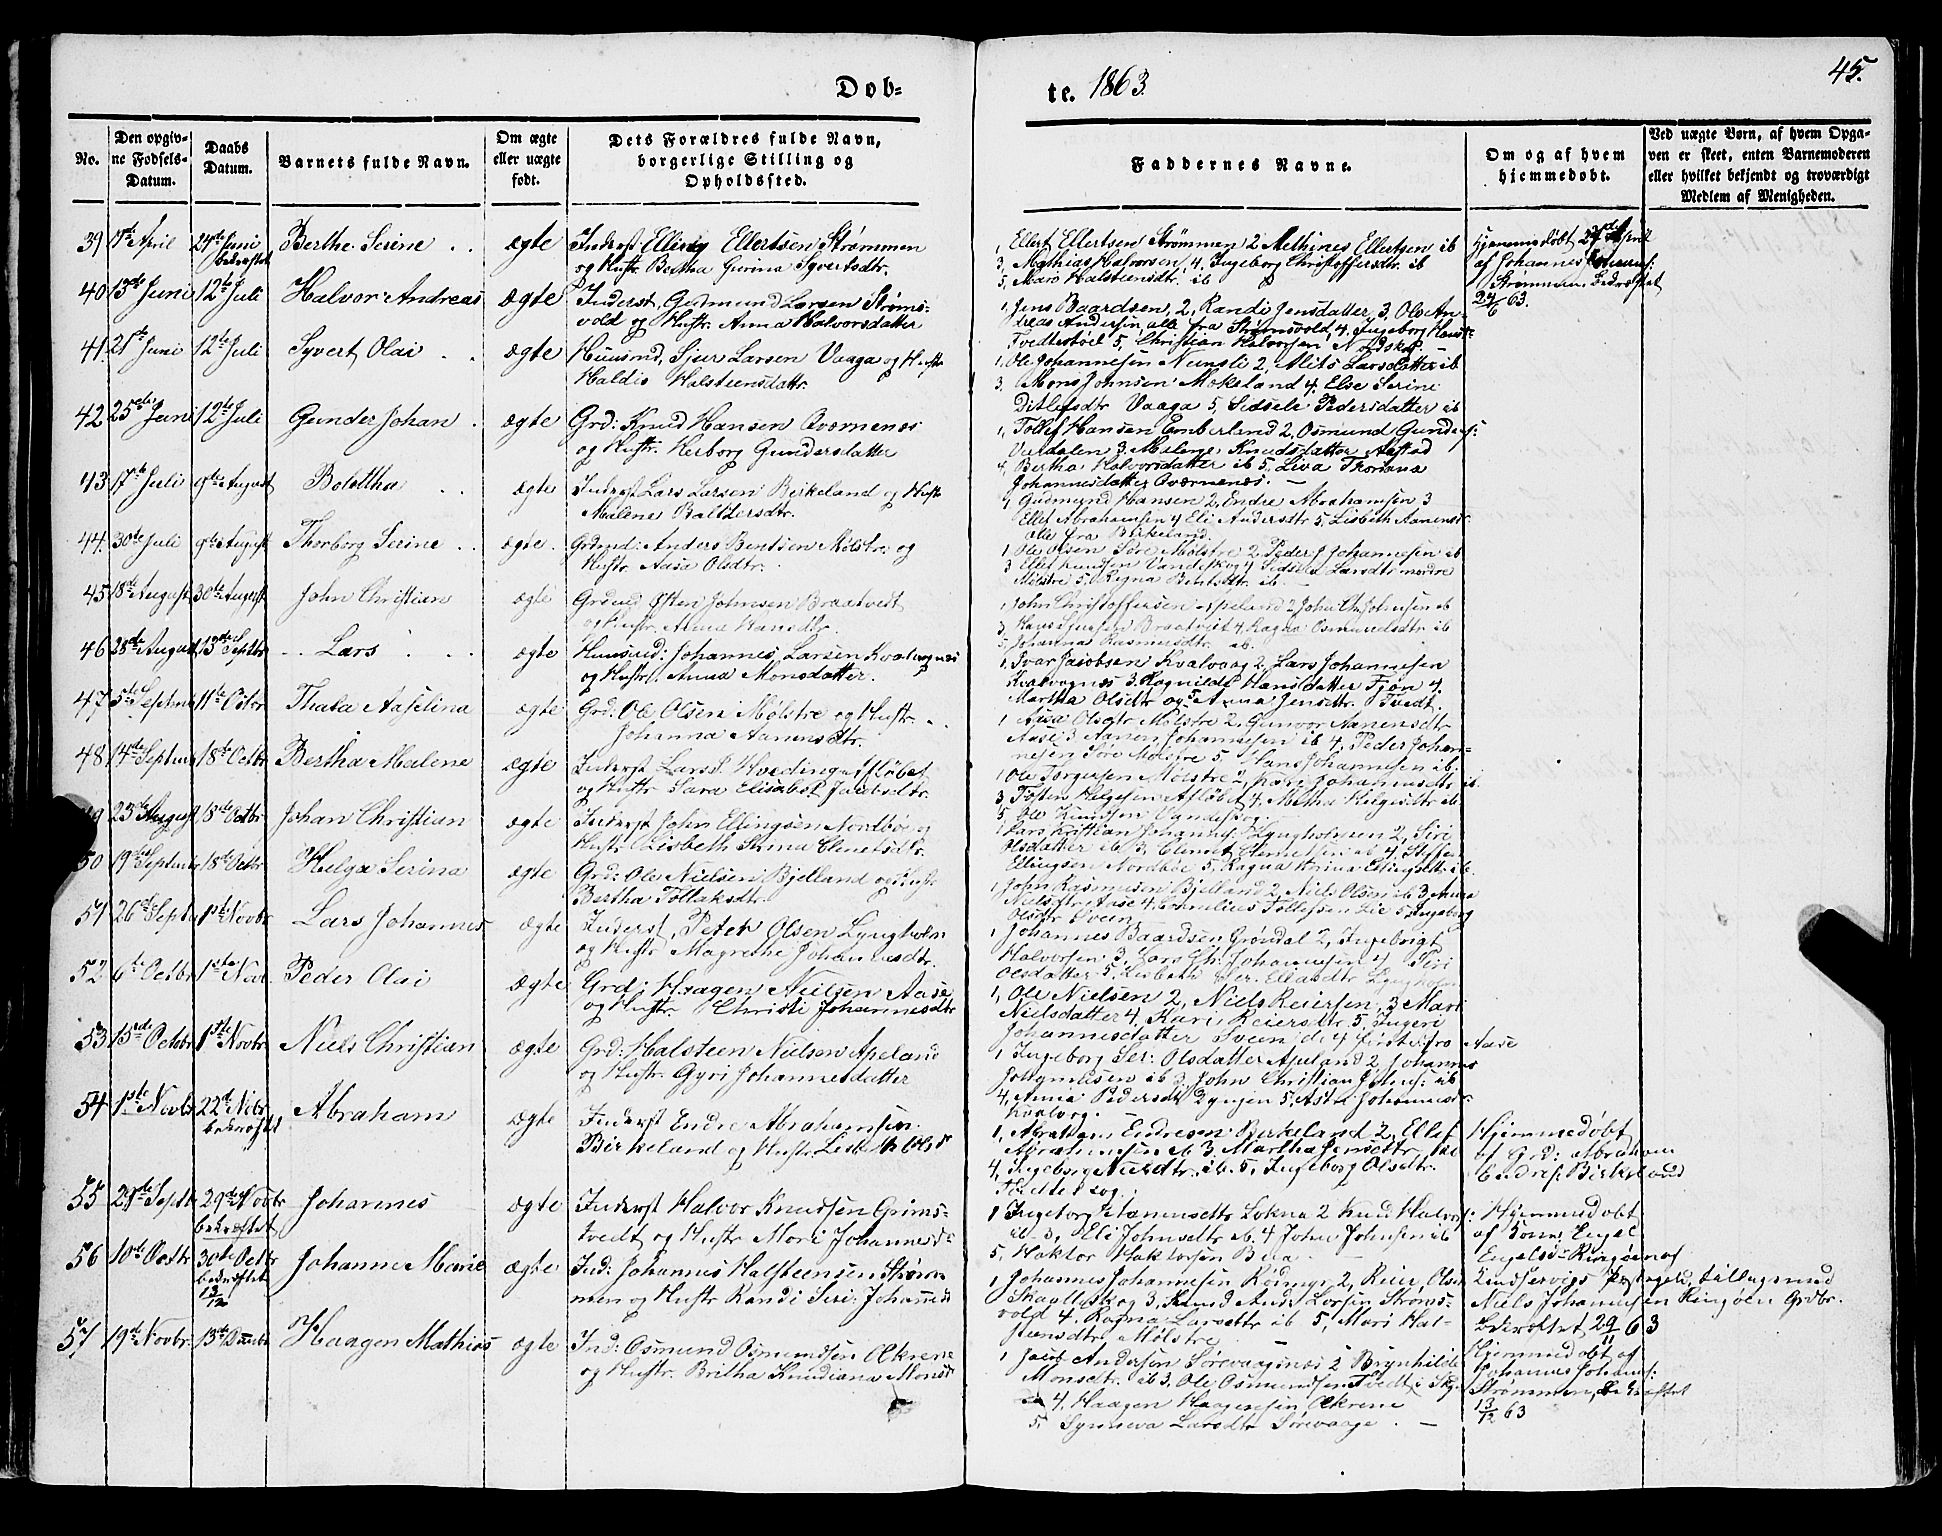 Døb-
te. 1863.
45.
No.
Den opgiv-
ne Fødsels-
Datum.
Daabs
Datum.
Barnets fulde Navn.
Om ægte
eller uægte
født.
Dets Forældres fulde Navn,
borgerlige Stilling og
Opholdssted.
Faddernes Navne.
Om og af hvem
hjemmedøbt.
Ved uægte Børn, af hvem Opga-
ven er skeet, enten Barnemoderen
eller hvilket bekjendt og troværdigt
Medlem af Menigheden.
39 April Juni Berthe Serine ægte Inderst Elling Ellertsen Strømmen
bekræftet og Hustr. Bertha Gurina Syvertsdtr.
1, Ellert Ellertsen Strømmen 2 Mathines Ellertsen ib
3, Mathias Halvorsen, 4, Ingeborg Christoffersdtr. ib
5, Mari Halsteensdtr. ib
Hjemmedøbt April
af Johannes
Strømmen. Bekræftet
63.
40 13de Juni 12te Juli Halvor Andreas ægte Inderst, Gudmund Larsen Strøms-
vold og Hustr. Anna Halvorsdatter
1, Jens Baardsen, 2, Randi Jensdatter, 3, Ole An-
dreas Andersen, alle fra Strømsvold, 4, Ingeborg
5, Christian Halvorsen
41. 21de Juni 12te Juli Syvert Olai ægte Huusmd, Sjur Larsen Vaaga og Hustr
Haldis Halsteensdattr.
1, Ole Johannesen 2, Larsdatter ib
3, Mons Johnsen Mokeland 4, Else Serine
Ditlefsdtr Vaaga 5, Sidsele Pedersdatter ib
42 25de Juni 12te Juli Gunder Johan ægte Grd: Knud Hansen Qværnenes
og Hustr. Herborg Gundersdatter
1, Hansen Emberland 2, Osmund
3, Malene Knudsdatter
4, Bertha Halvorsdatter ib 5, Thordana
Johannesdatter Qværnenes.
43 Juli 9de August Bolettha ægte Inderst Lars Larsen Birkeland og Hustr
Malene Baltzersdtr.
1, Gudmund Hansen 2, Endre Abrahamsen 3
Ellef Abrahamsen 4 Eli Andersdtr 5, Lisbeth
alle fra Birkeland.
44. 30te Juli 9de August Thorborg Serine ægte. Grdmd: Anders Bentsen Mølstre og
Hustr. Aasa Olsdtr.
1 Ole Olsen Søre Mølstre 2, Peder Johannesen ib
3 Ellef Knudsen Vandeskog 4 Larsdtr nordre
Mølstre 5, Ragna ib
45 18de August 30te August John Christian ægte Grdmd Østen Johnsen Braatvedt
og Hustr. Anna Hansdtr.
1, John Christoffersen Apeland 2 John Chr. Johnsen ib
3, Hans Braatvedt 4, Ragna Osmundsdtr ib
5, Johanna Rasmusdtr ib.
46 28de August 13de Septbr Lars ægte Huusmd: Johannes Larsen Kvalvognæs
og Hustr. Anna Monsdatter.
1, Ivar Jacobsen Kvalvaag 2, Lars Johannesen
Kvalvognæs 3, Ragnilde Hansdatter Fjøn 4,
Martha Olsdtr og 5 Anna Jensdtr. Tvedt.
47 5te Septmbr 11te Octbr Thala Aaselina ægte Grd: Ole Olsen Mølstre og Hustr.
Johanna Aanensdtr.
1 Aasa Olsdtr Mølstre 2, Gunvor Aanensdtr
Aase 3 Aanen Johannesen ib 4, Peder Johan-
nesen Søre Mølstre 5, Hans Johannesen ib.
48 14de Septmbr 18de Octbr Bertha Malene ægte Inderst Lars
og Hustr Sara Elisabet Jacobsdtr.
1, Ole Torgersen Mølstre 2, Johannesdtr ib
3, Tosten Helgesen 4, Metha Helgesdtr ib.
5, Ole Knudsen Vandeskog.
23de August 18de Octbr Johan Christian ægte Inderst John Ellingsen Nordbøe og
Hustr. Lisbeth Clemetsdtr.
Lars Kristian Johannes: Lyngholmen 2, Siri
Olsdatter ib 3, Clemet Clemetsen ib 4, Steffen
Ellingsen Nordbøe 5, Ragna Ellingsdtr. ib.
50 19de Septmbr 18de Octbr Helga Serina ægte Grd: Ole Nielsen Bjelland og Hustr
Bertha Tollaksdtr.
1, John Rasmussen Bjelland 2, Niels Olsen ib 3 Anna
Nielsdtr Aase 4, Cornelius Tollefsen Lie 5, Ingeborg
Olsdtr Sveen.
51 26de Septbr 1ste Novbr Lars Johannes ægte Inderst, Peter Olsen Lyngholm
og Hustr Magrethe Johannesdtr.
1, Johannes Baardsen Grøndal 2, Ingebrigt
Halvorsen 3, Lars Chr. Johannesen 4, Siri
Olsdatter 5, Lisbeth Ser. Eliasdtr
52 6te Octbr 1ste Nov. Peder Olai ægte Grd: Haagen Nielsen Aase
og Hustr. Christi Johannesdtr
1, Ole Nielsen 2, Niels Reiersen, 3 Mari
Nielsdatter 4, Kari Reiersdtr. 5, Ingeri
Johannesdatter Sveen de 4 første fra Aase
53 15de Octbr 1ste Novbr Niels Christian ægte Grd: Halsteen Nielsen Apeland
og Hustr. Gyri Johannesdatter
1, Ingeborg Ser: Olsdatter Apeland 2, Johannes
ib 3, John Christian Johns: ib
4, Anna Pedersdtr Dyngen 5, Johannesdtr
54 1ste Novbr 22de Nvbr. Abraham ægte Inderst Endre Abrahamsen
bekræftet Birkeland og Hustr. Lisbeth Olsdtr
1, Abraham Endresen Birkeland 2, Ellef
Abrahamsen ib 3, Martha Jensdtr ib
4, Ingeborg ib. 5, Ingeborg Olsdtr.
Hjemmedøbt
af Grd: Abraham
Endres: Birkeland
55 Septbr 29de Novbr Johannes ægte Inderst Halvor Knudsen Grims-
bekræftet tvedt og Hustr Mari Johannesdtr
1 Ingeborg Lokna 2 Knud Halvors:
ib 3, Eli Johnsdtr ib. 4 John Johnsen ib
5, Haktor Haktorsen
Hjemmedøbt
af Engel
Engelsd: Ringøen af
Kindservigs Præstegjeld, tilligemed
Niels Johannesen Ringøen Grdbr.
Bekræftet 29/11 63
56 10de Octbr 30te Octbr Johanne Marie ægte Ind: Johannes Halsteensen Strøm-
bekræftet men og Hustr Randi Seri: Johannesdtr
13/12
1 Johannes Johannesen Rødmyr, 2, Reier Olsen
3, Knud Andr. Larsen Strøms-
vold 4, Ragna Larsdtr ib 5, Mari Hal-
steensdtr. Mølstre
Hjemmedøbt af
Johannes Johannes:
Strømmen, Bekræftet
13/12 63
57 19de Novbr: 13de Decbr Haagen Mathias ægte Ind: Osmund Osmundsen Økrene
og Hustr. Britha Knudiana Monsdtr
1 Jacob Andersen Sørevaagenes 2 Brynhilde
Monsdtr. ib 3, Ole Osmundsen Tvedt i Skj.
4, Haagen Haagensen Økrene
5, Synneva Larsdtr Sørevaage.